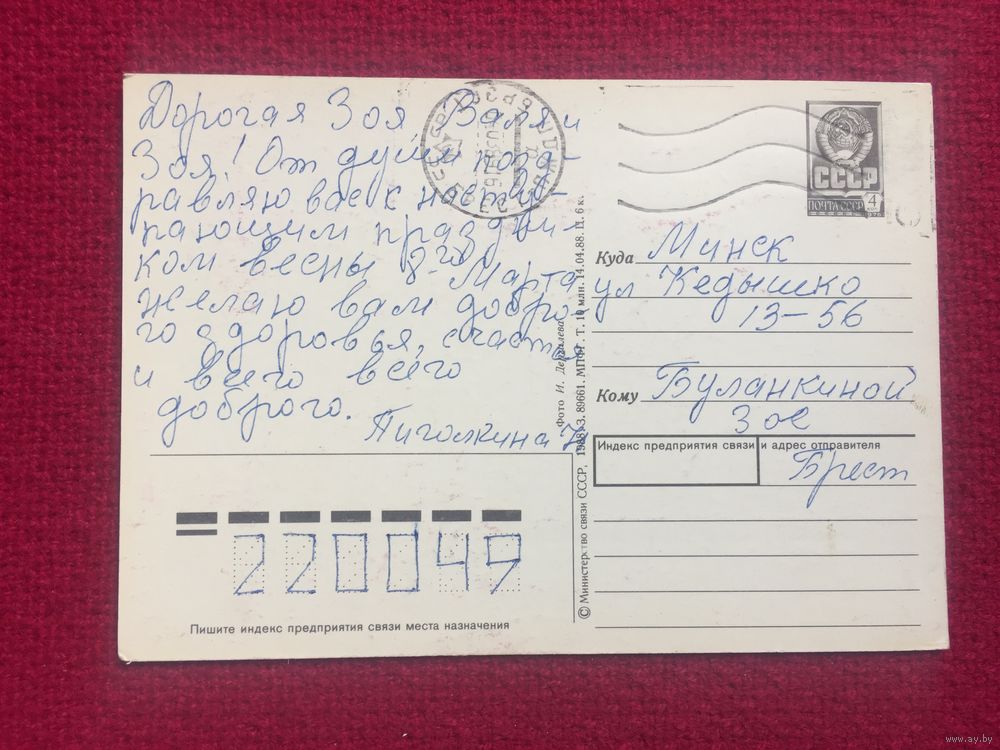 Дорогая Зоя, Валя и
Зоя! От души поздр-
равляю вас с насту-
пающим праздни-
ком весны 8 Марта
желаю вам доброго-
го здоровья, счастья
и всего всего
доброго.
Пиголкина Н
СССР
ПОЧТА СССР 4
1976
Куда Минск
ул Кедышко
13-56
Кому Буланкиной
Зое
Индекс предприятия связи и адрес отправителя
Брест
220049
Пишите индекс предприятия связи места назначения
© Министерство связи СССР, 1988. З. 89661. МПФГ. Т. 10 млн. 14.04.88. Ц. 6 к.
Фото И. Дергилева
www.ay.by